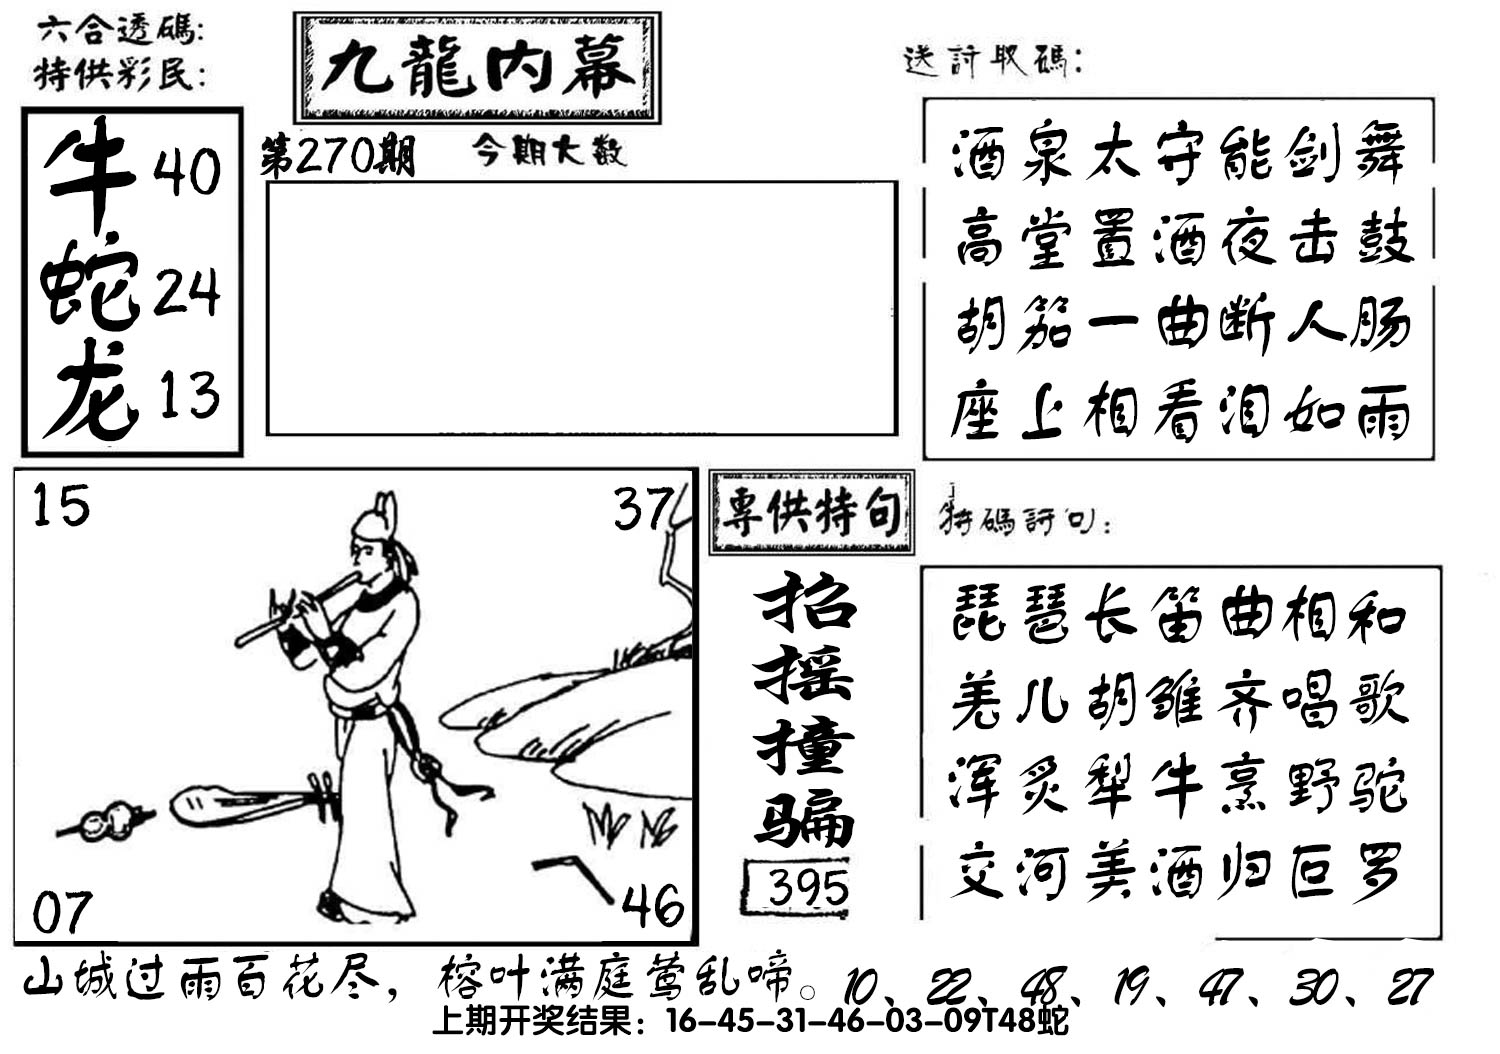 六合透碼:
特供彩民:
九龍内幕
第270期 今期大数
牛 40
蛇 24
龙 13
送詩取碼:
酒泉太守能剑舞
高堂置酒夜击鼓
胡笳一曲断人肠
座上相看泪如雨
15
37
07
46
專供特句
招摇撞骗
395
特碼詩句:
琵琶长笛曲相和
羌儿胡雏齐唱歌
浑炙犁牛烹野驼
交河美酒归叵罗
山城过雨百花尽，榕叶满庭莺乱啼。10、22、48、19、47、30、27
上期开奖结果：16-45-31-46-03-09T48蛇